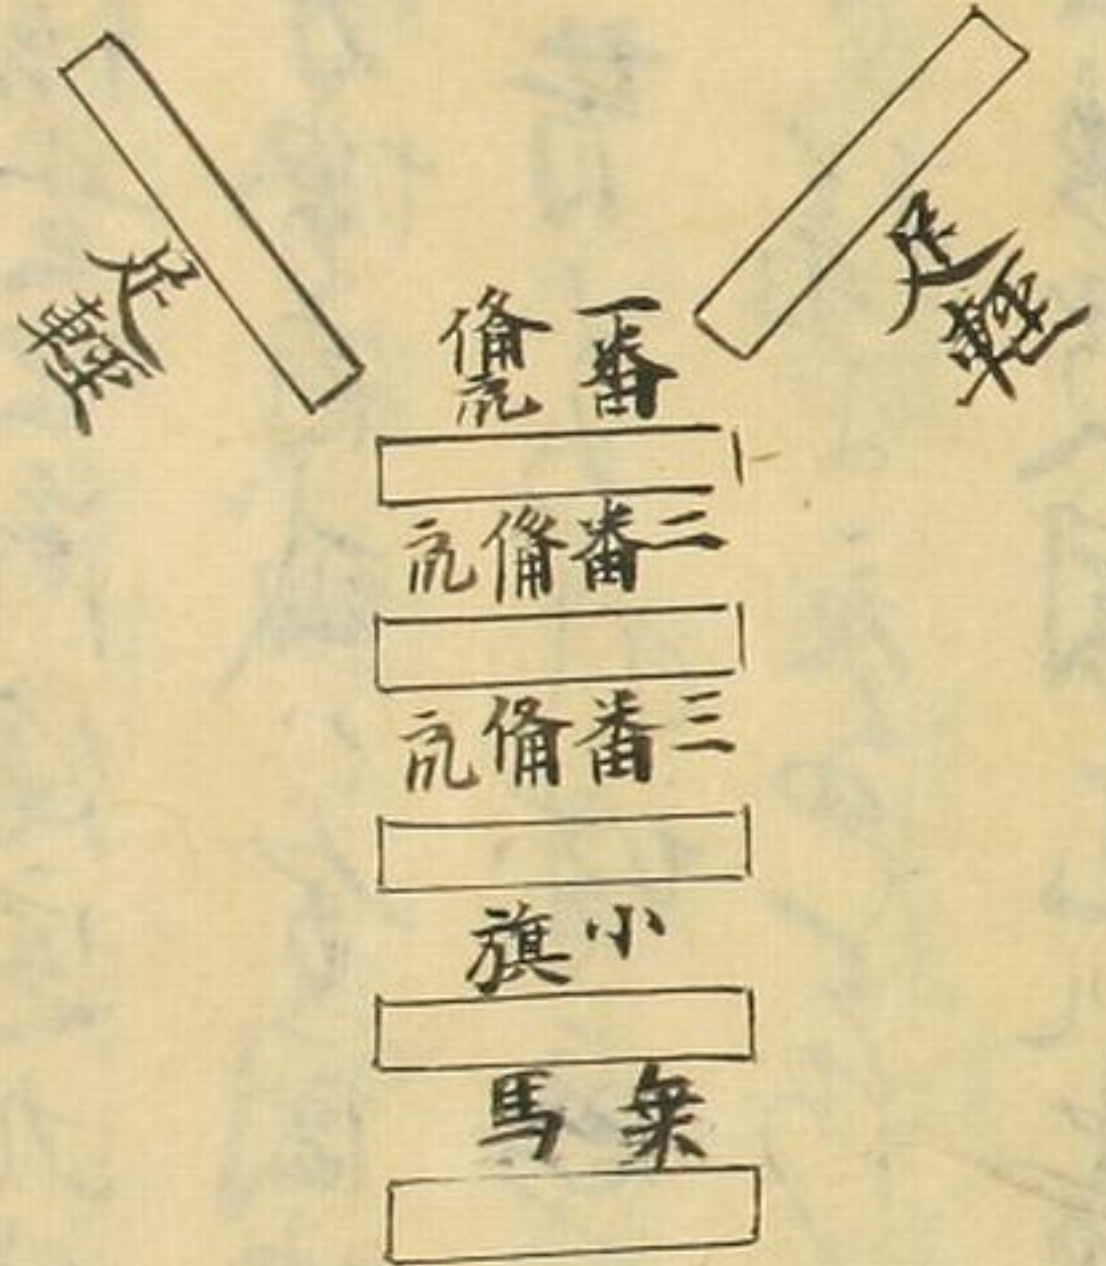 足軽
足軽
一番備
二番備
三番備
小旗
乗馬